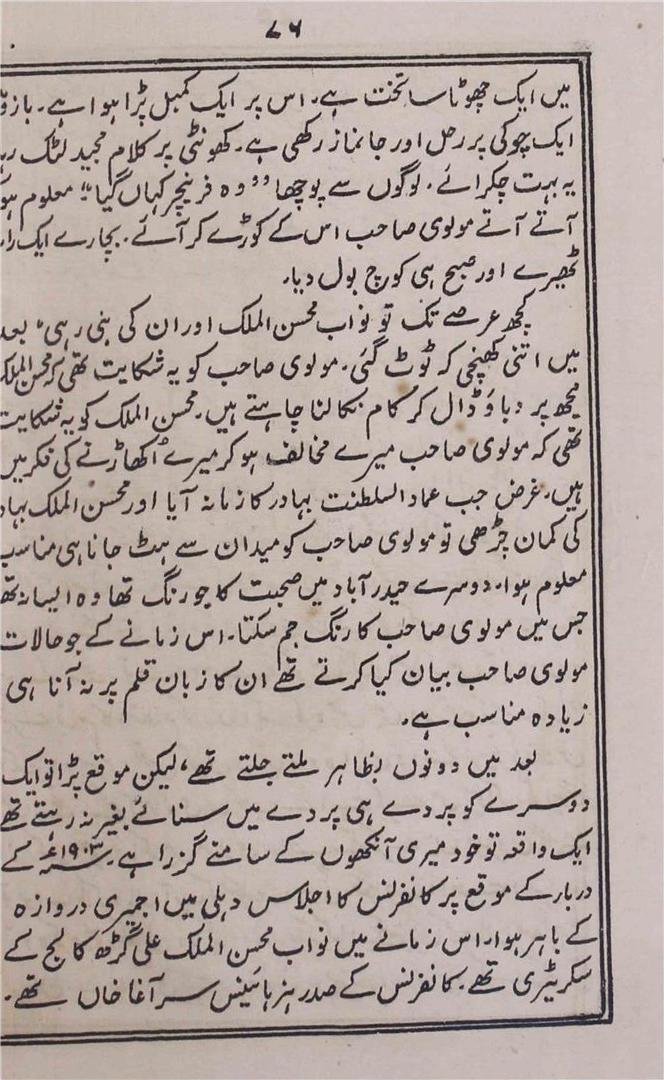 ۷۶
میں ایک چھوٹا سا تخت ہے۔ اس پر ایک کمبل پڑا ہوا ہے۔
ایک چوکی پر رحل اور جانماز رکھی ہے۔ کھونٹی پر کلام مجید لٹک
یہ بہت چکرائے۔ لوگوں سے پوچھا "وہ فرنیچر کہاں گیا"؛ معلوم
آتے آتے مولوی صاحب اس کے کوڑے کر آئے۔ بچارے ایک
ٹھیرے اور صبح ہی کوچ بول دیا۔
کچھ عرصے تک تو نواب محسن الملک اور ان کی بنی رہی، بعد
میں اتنی کھنچی کہ ٹوٹ گئی۔ مولوی صاحب کو یہ شکایت تھی کہ محسن الملک
مجھ پر دباؤ ڈال کر کام نکالنا چاہتے ہیں۔ محسن الملک کو یہ شکایت
تھی کہ مولوی صاحب میرے مخالف ہو کر میرے اُکھاڑنے کی فکر میں
ہیں۔ غرض جب عماد السلطنت بہادر کا زمانہ آیا اور محسن الملک
کی کمان چڑھی تو مولوی صاحب کو میدان سے ہٹ جانا ہی مناسب
معلوم ہوا۔ دوسرے حیدرآباد میں صحبت کا جو رنگ تھا وہ ایسا نہ
جس میں مولوی صاحب کا رنگ جم سکتا۔ اس زمانے کے جو حالات
مولوی صاحب بیان کیا کرتے تھے ان کا زبان قلم پر نہ آنا ہی
زیادہ مناسب ہے۔
بعد میں دونوں بظاہر ملتے جلتے تھے، لیکن موقع پڑا تو ایک
دوسرے کو پردے ہی پردے میں سنائے بغیر نہ رہتے تھے
ایک واقعہ تو خود میری آنکھوں کے سامنے گزرا ہے۔ ۱۹۰۳ء کے
دربار کے موقع پر کانفرنس کا اجلاس دہلی میں اجمیری دروازہ
کے باہر ہوا۔ اس زمانے میں نواب محسن الملک علی گڑھ کالج کے
سکریٹری تھے۔ کانفرنس کے صدر ہز ہائینس سر آغا خاں تھے۔